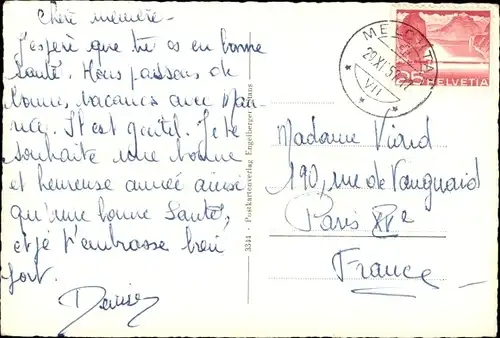 Chère mémère -
J'espère que tu es en bonne
Santé. Nous passons de
bonnes vacances avec Mau-
rice. Il est gentil. Je te
souhaite une bonne
et heureuse année ainsi
qu'une bonne Santé,
et je t'embrasse bien
fort.
Denise
3344 - Postkartenverlag Engelberger, Stans
MELCHTAL
VII
25 HELVETIA
Madame
190, rue de Vaugirard
Paris XVe
France